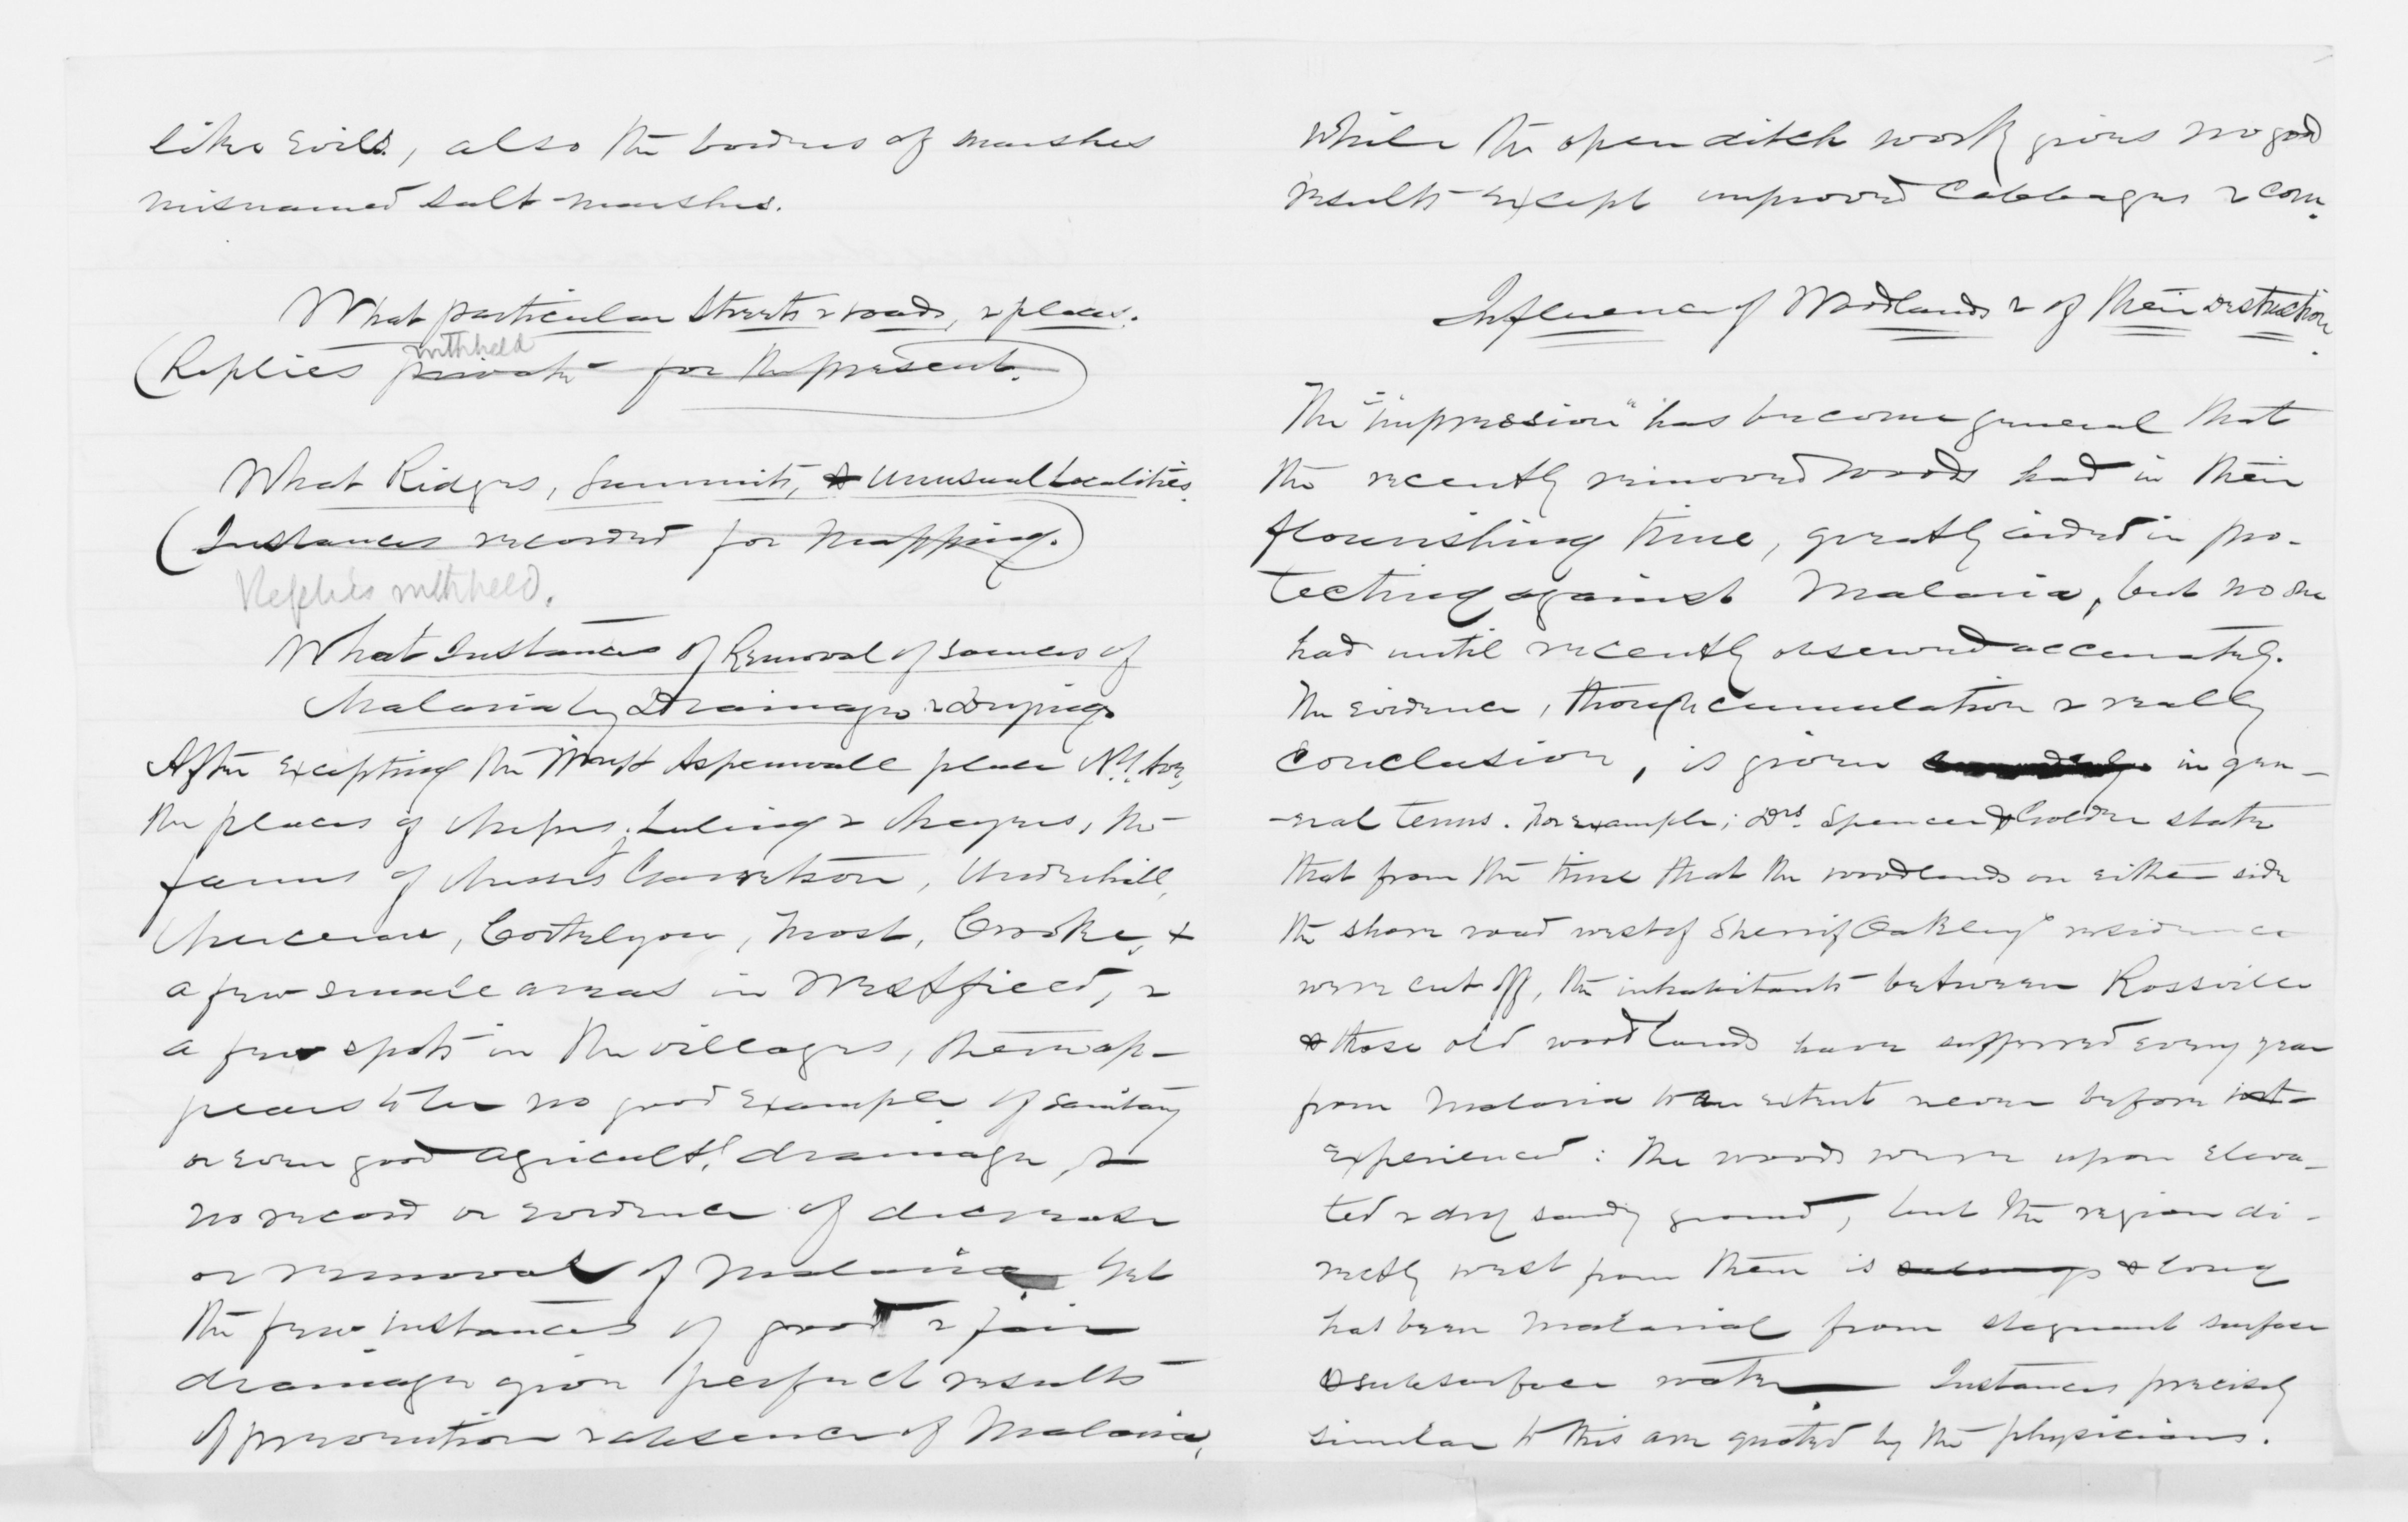 like evils, also the borders of marshes
misnamed salt-marshes.
What particular streets & roads, & places.
withheld
(Replies private for the present.)
What Ridges, Summits, & Unusual Localities.
(Instances recorded for Mapping.)
Replies withheld.
What Instances of Removal of sources of
Malaria by Drainage & Drying
After excepting the Aspinwall place
the places of the
farms of Garretson, Underhill,
Cortelyou, Crooke, &
a few small areas in Westfield, &
a few spots in the villages, there ap-
pears to be no good example of sanitary
or even good agricult'l drainage, &
no record or evidence of decrease
or removal of Malaria Yet
the few instances of good & fair
drainage give perfect results
of prevention & absence of Malaria,
While the open ditch work gives no good
results except improved Cabbages & corn.
Influence of Woodlands & of their Destruction.
The "impression" has become general that
the recently removed woods had in their
flourishing time, greatly aided in pro-
tecting against Malaria, but no one
had until recently observed accurately.
The evidence, though cumulation & really
conclusion, is given in gen-
-eral terms. For example; Drs. Spencer & Golder state
that from the time that the woodlands on either side
the shore road west of Sherrif Oakley's residence
were cut off, the inhabitants between Rossville
& those old woodlands have suffered every year
from Malaria to an extent never before
experienced: The woods were upon eleva-
ted & dry sandy ground, but the region di-
rectly west from them is & long
has been Malarial from stagnant surface
& subsurface water Instances precisely
similar to this are quoted by the physicians.